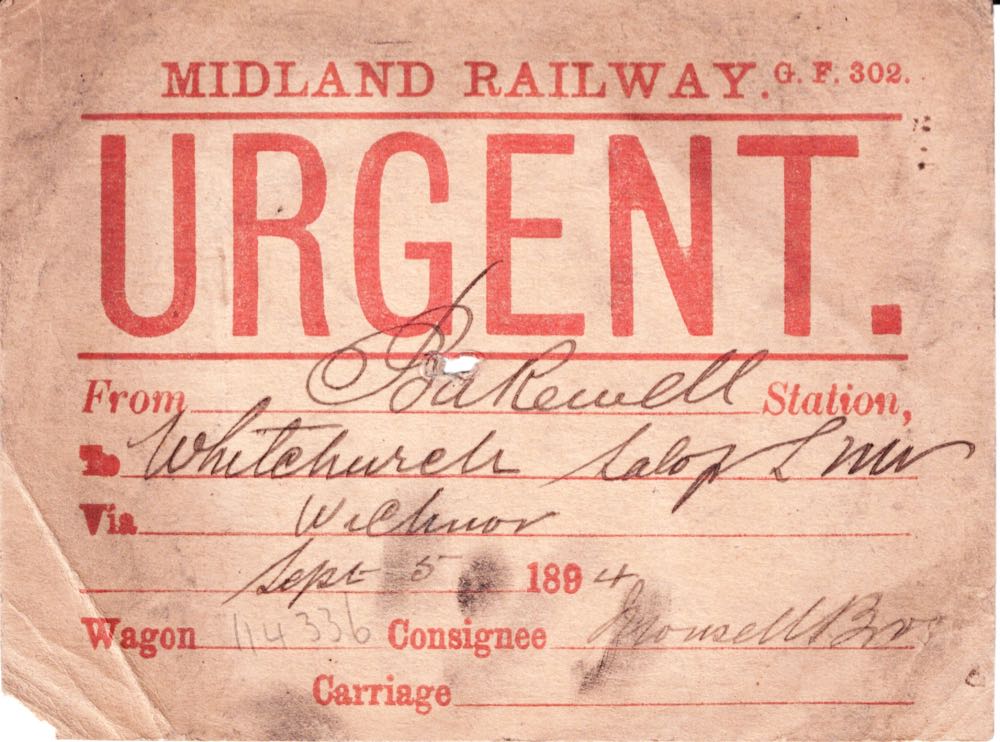 MIDLAND RAILWAY. G. F. 302.
URGENT.
From Bakewell Station,
To Whitchurch Salop L N W
Via Wichnor
Sept 5 1894
Wagon 114336 Consignee Bro
Carriage